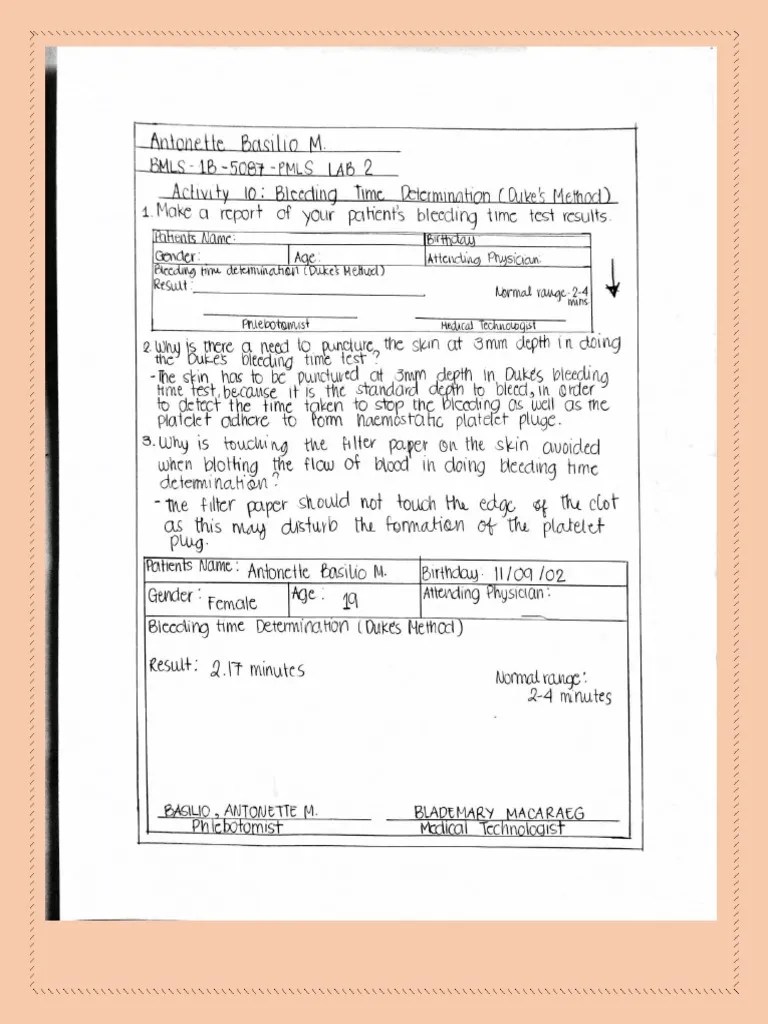 Antonette Basilio M.
BMLS-1B-5087-PMLS LAB 2
Activity 10: Bleeding Time Determination (Duke's Method)
1. Make a report of your patient's bleeding time test results.
Patients Name: Birthday
Gender: Age: Attending Physician:
Bleeding time determination (Duke's Method)
Result:
Normal range: 2-4
mins
Phlebotomist Medical Technologist
2. Why is there a need to puncture the skin at 3mm depth in doing
the Duke's bleeding time test?
- The skin has to be punctured at 3mm depth in Duke's bleeding
time test, because it is the standard depth to bleed, in order
to detect the time taken to stop the bleeding as well as the
platelet adhere to form haemostatic platelet pluge.
3. Why is touching the filter paper on the skin avoided
when blotting the flow of blood in doing bleeding time
determination?
- The filter paper should not touch the edge of the clot
as this may disturb the formation of the platelet
plug.
Patients Name: Antonette Basilio M. Birthday: 11/09/02
Gender: Female Age: 19 Attending Physician:
Bleeding time Determination (Dukes Method)
Result: 2.17 minutes
Normal range:
2-4 minutes
BASILIO, ANTONETTE M. BLADEMARY MACARAEG
Phlebotomist Medical Technologist